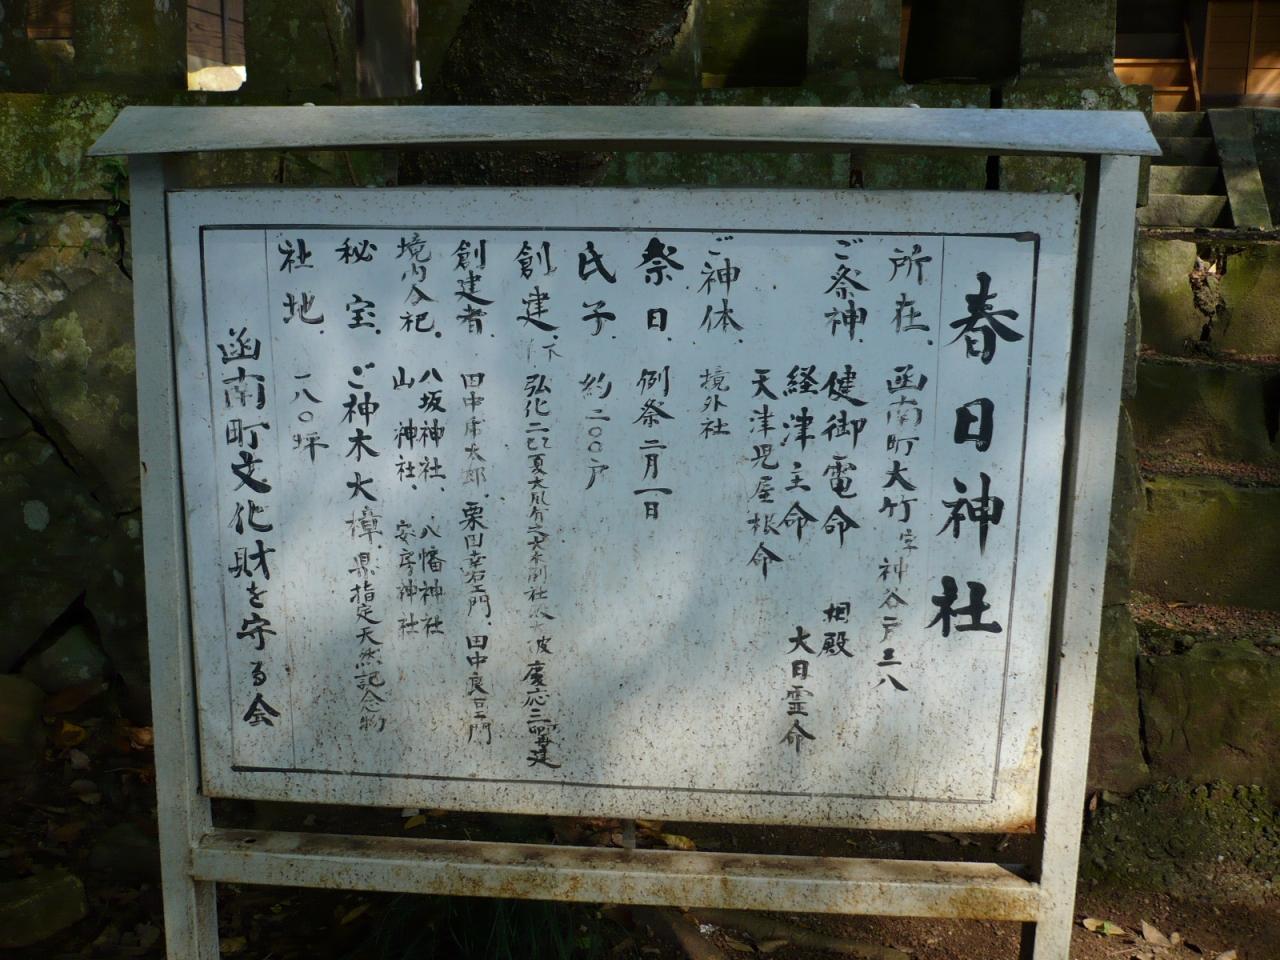 春日神社
所在、函南町大竹字神谷戸三八
ご祭神、健御雷命 相殿
経津主命 大日霊命
天津児屋根命
ご神体、境外社
祭日、例祭二月一日
氏子、約二〇〇戸
創建、不 弘化二乙巳夏大風 慶応三 再建
創建者、田中 太郎、栗田幸右エ門、田中良 門
境内分祀。八坂神社、八幡神社
山神社、安房神社
秘宝。ご神木大樟県指定天然記念物
社地、一八〇坪
函南町文化財を守る会